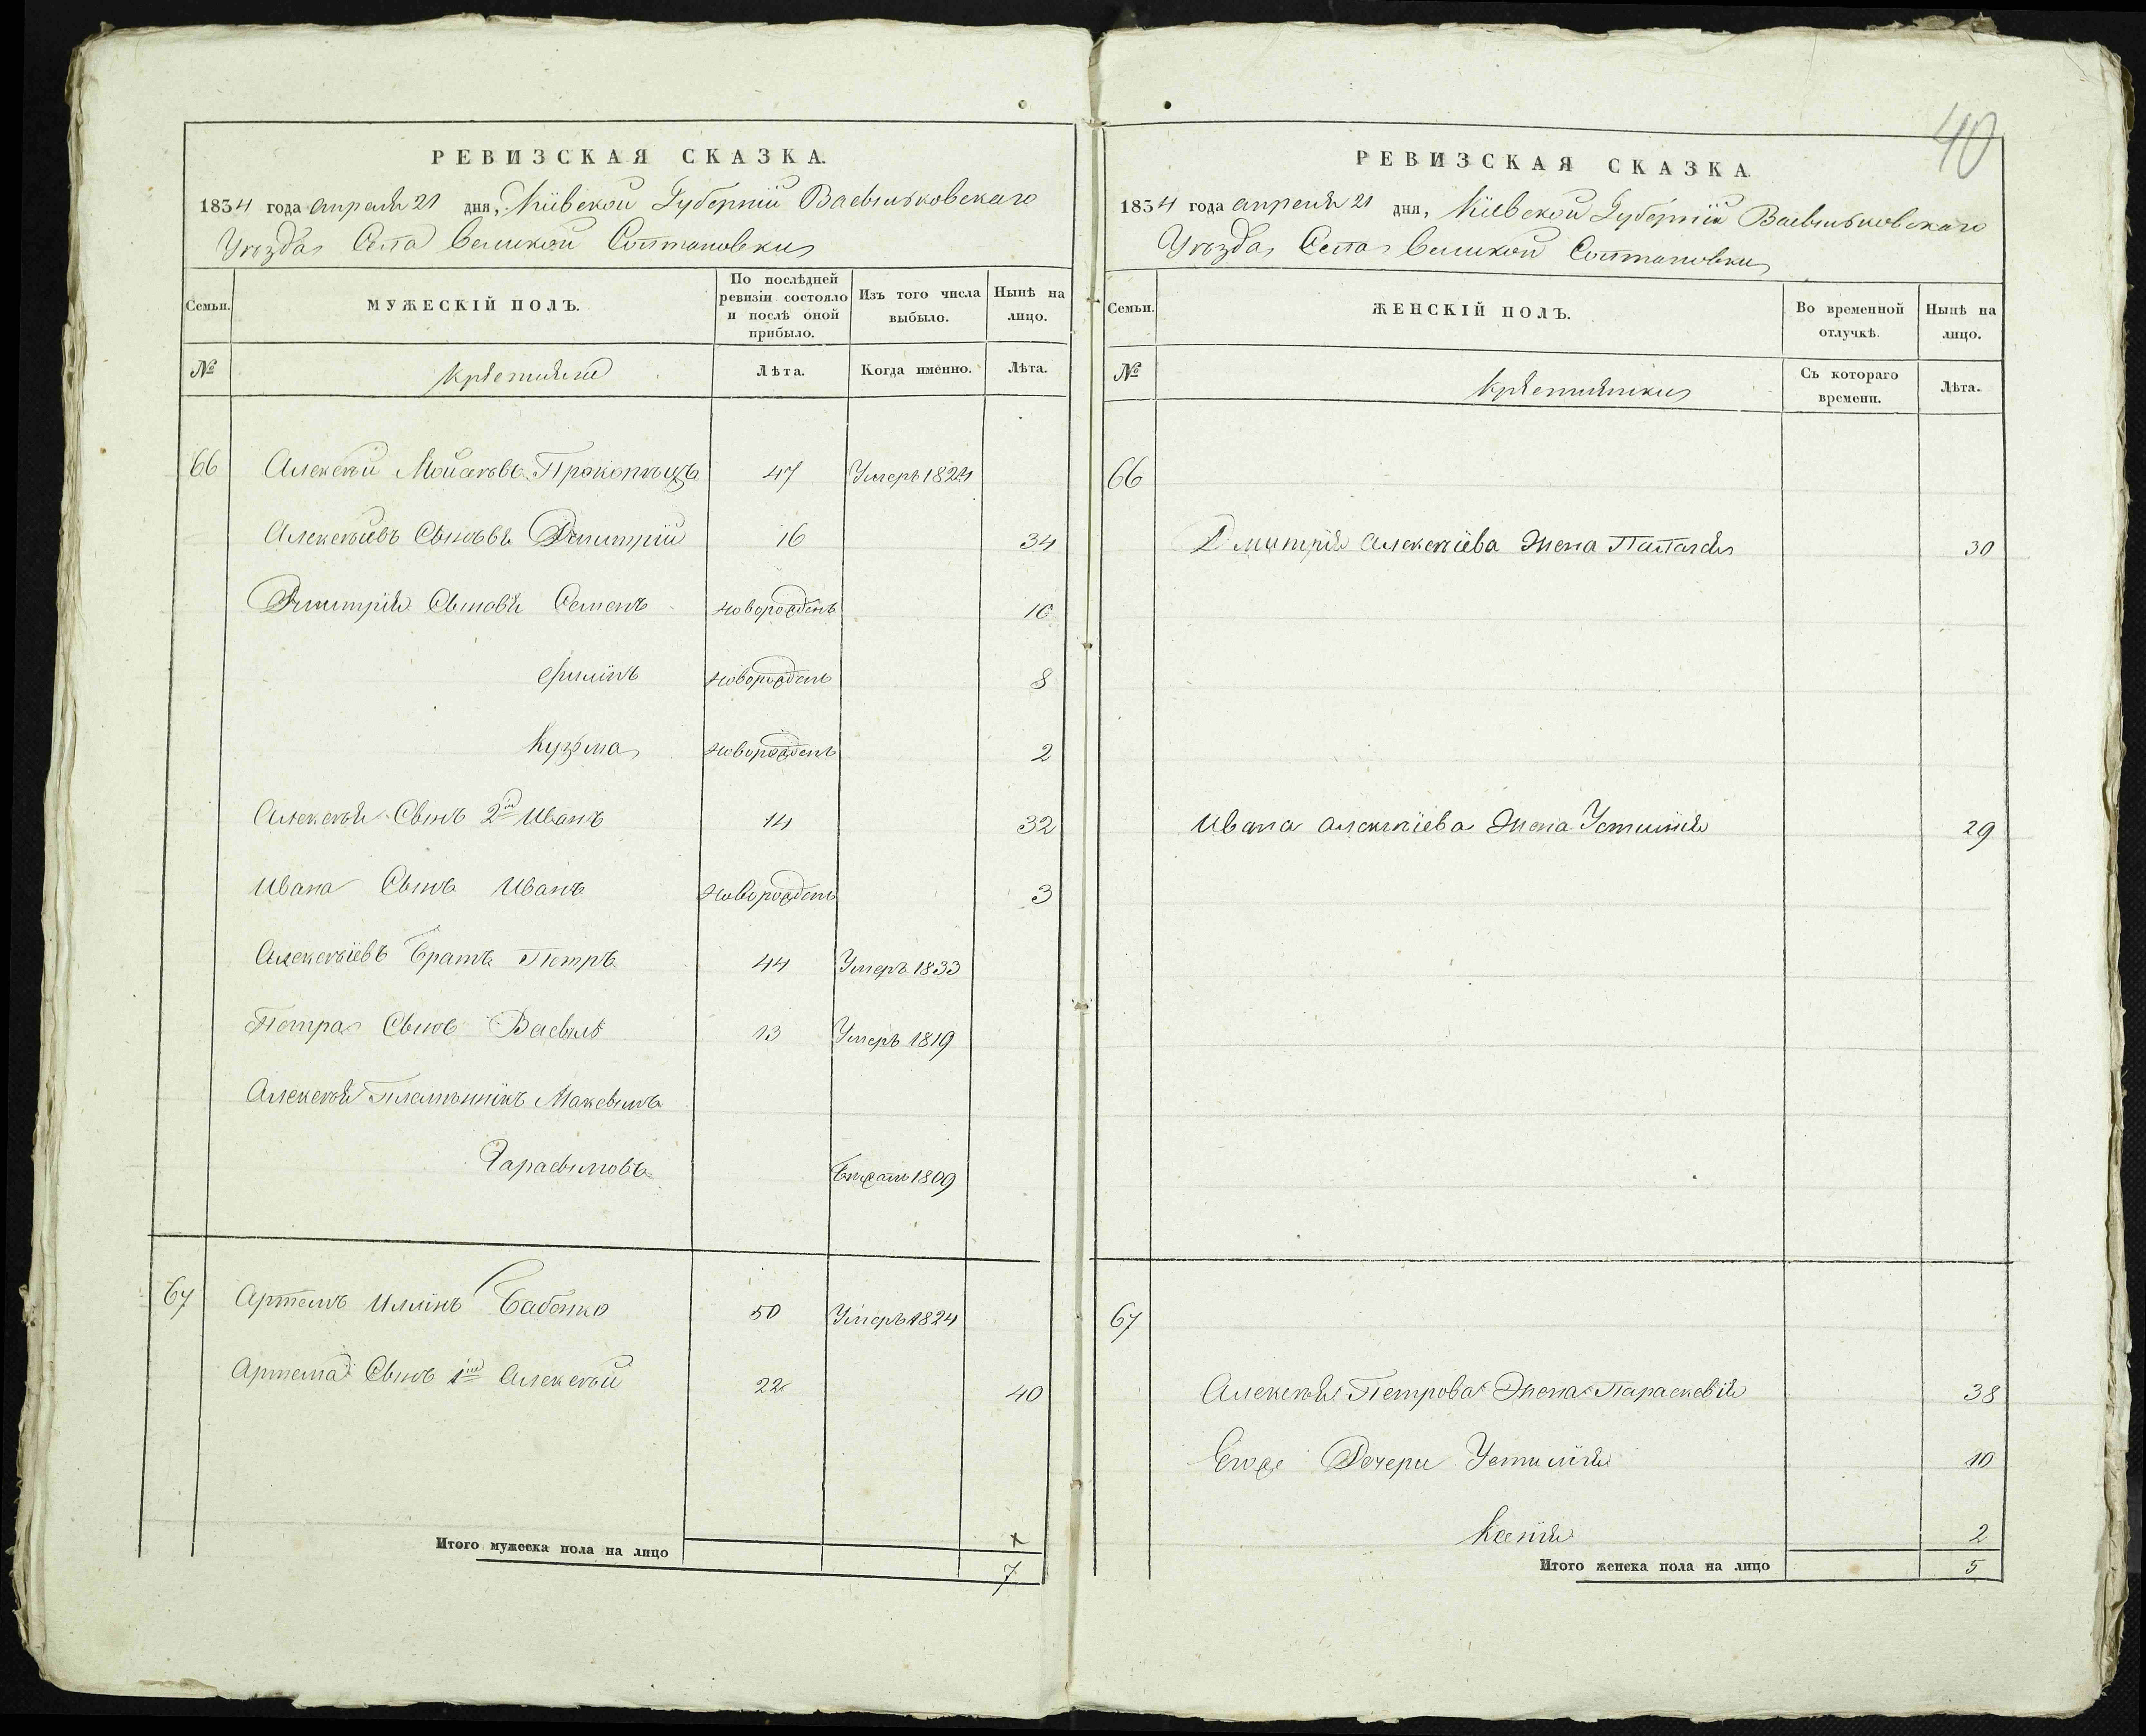 РЕВИЗСКАЯ СКАЗКА.
1834 года апреля 21 дня, Кіевской Губерніи Васильковскаго
Уезда Села Великой Солтановки
Семьи. МУЖЕСКІЙ ПОЛЪ. По послѣдней ревизіи состояло и послѣ оной прибыло. Изъ того числа выбыло. Нынѣ на лицо.
№ Крестьяне Лѣта. Когда именно. Лѣта.
66 Алексѣй Мойсѣевъ Прокопецъ 47 Умеръ 1824
Алексѣевъ Сыновья Дмитрій 16 34
Дмитрія Сыновья Семенъ новорожденъ 10
Филипъ новорожденъ 8
Кузьма новорожденъ 2
Алексѣя Сынъ 2й Иванъ 14 32
Ивана Сынъ Иванъ Новорожденъ 3
Алексѣевъ Братъ Петръ 44 Умеръ 1833
Петра Сынъ Василь 13 Умеръ 1819
Алексѣя Племѣнникъ Максимъ
Гарасимовъ 1809
67 Артемъ Бабенко 50 Умеръ 1824
Артема Сынъ 1й Алексѣй 22 40
Итого мужеска пола на лицо 7
40
РЕВИЗСКАЯ СКАЗКА.
1834 года апреля 21 дня, Кіевской Губерніи Васильковскаго
Уезда Села Великой Солтановки
Семьи. ЖЕНСКІЙ ПОЛЪ. Во временной отлучкѣ. Нынѣ на лицо.
№ Крестьянки Съ котораго времени. Лѣта.
66
Дмитрія Алексѣева Жена 30
Ивана Алексѣева Жена Устинія 29
67
Алексѣя Петрова Жена Параскевія 38
Егоже Дочери Устинія 10
Ксенія 2
Итого женска пола на лицо 5